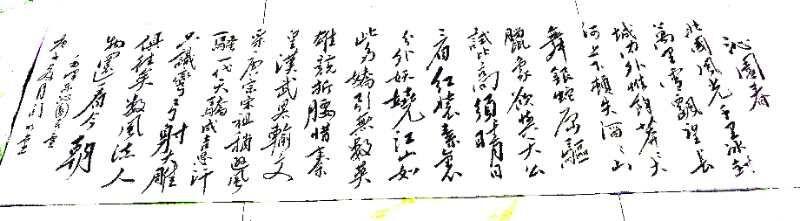 沁園春
北國風光千里冰封
萬里雪飄望長
城內外惟餘莽莽大
河上下頓失滔滔山
舞銀蛇原驅
臘象欲與天公
試比高須晴日
看紅裝素裹
分外妖嬈江山如
此多嬌引無數英
雄競折腰惜秦
皇漢武略輸文
采唐宗宋祖稍遜風
騷一代天驕成吉思汗
只識彎弓射大雕
俱往矣數風流人
物還看今朝